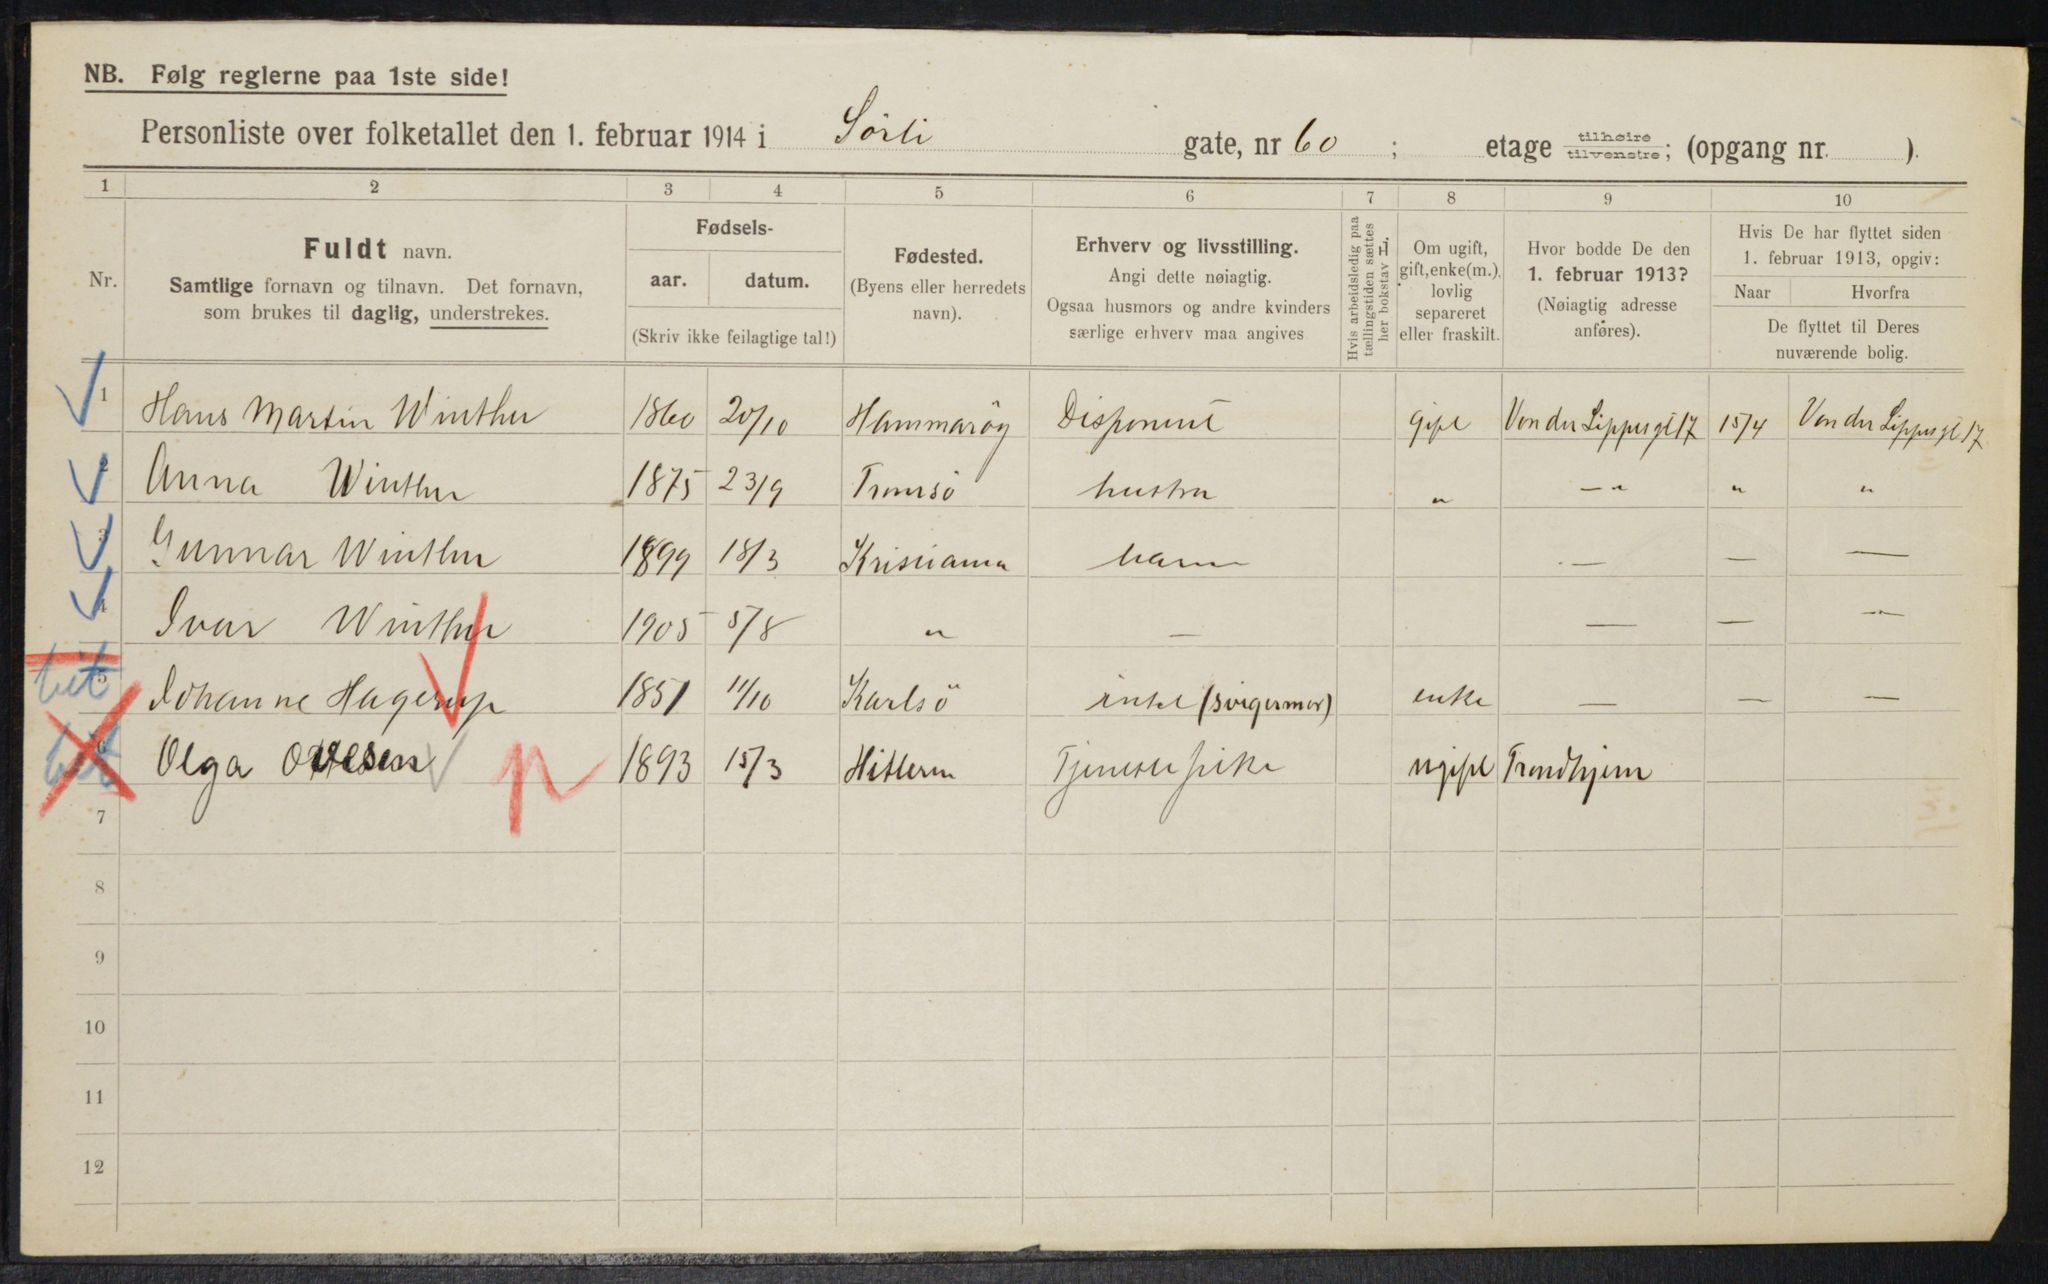 NB. Følg reglerne paa 1ste side!
Personliste over folketallet den 1. februar 1914 i Sörli gate, nr 60 ; etage tilhøire tilvenstre; (opgang nr. ).
1 2 3 4 5 6 7 8 9 10
Nr.
Fuldt navn.
Samtlige fornavn og tilnavn. Det fornavn,
som brukes til daglig, understrekes.
Fødsels-
aar. datum.
(Skriv ikke feilagtige tal!)
Fødested.
(Byens eller herredets
navn).
Erhverv og livsstilling.
Angi dette nøiagtig.
Ogsaa husmors og andre kvinders
særlige erhverv maa angives
Hvis arbeidsledig paa
tællingstiden sættes
her bokstav L.
Om ugift,
gift, enke(m.).
lovlig
separeret
eller fraskilt.
Hvor bodde De den
1. februar 1913?
(Nøiagtig adresse
anføres).
Hvis De har flyttet siden
1. februar 1913, opgiv:
Naar Hvorfra
De flyttet til Deres
nuværende bolig.
1 Hans Martin Winther 1860 20/10 Hammaröy Disponent gift Von der Lippesgt 17 15/4 Von der Lippesgt 17
2 Anna Winther 1875 23/9 Tromsö hustru " —" " "
3 Gunnar Winther 1899 18/3 Kristiania barn — — —
4 Ivar Winther 1905 5/8 " — — — —
5 Johanne Hagerup 1851 11/10 Karlsö intet (svigermor) enke — — —
6 Olga Ottesen 1893 15/3 Hitteren Tjenestepike ugift Trondhjem
7
8
9
10
11
12